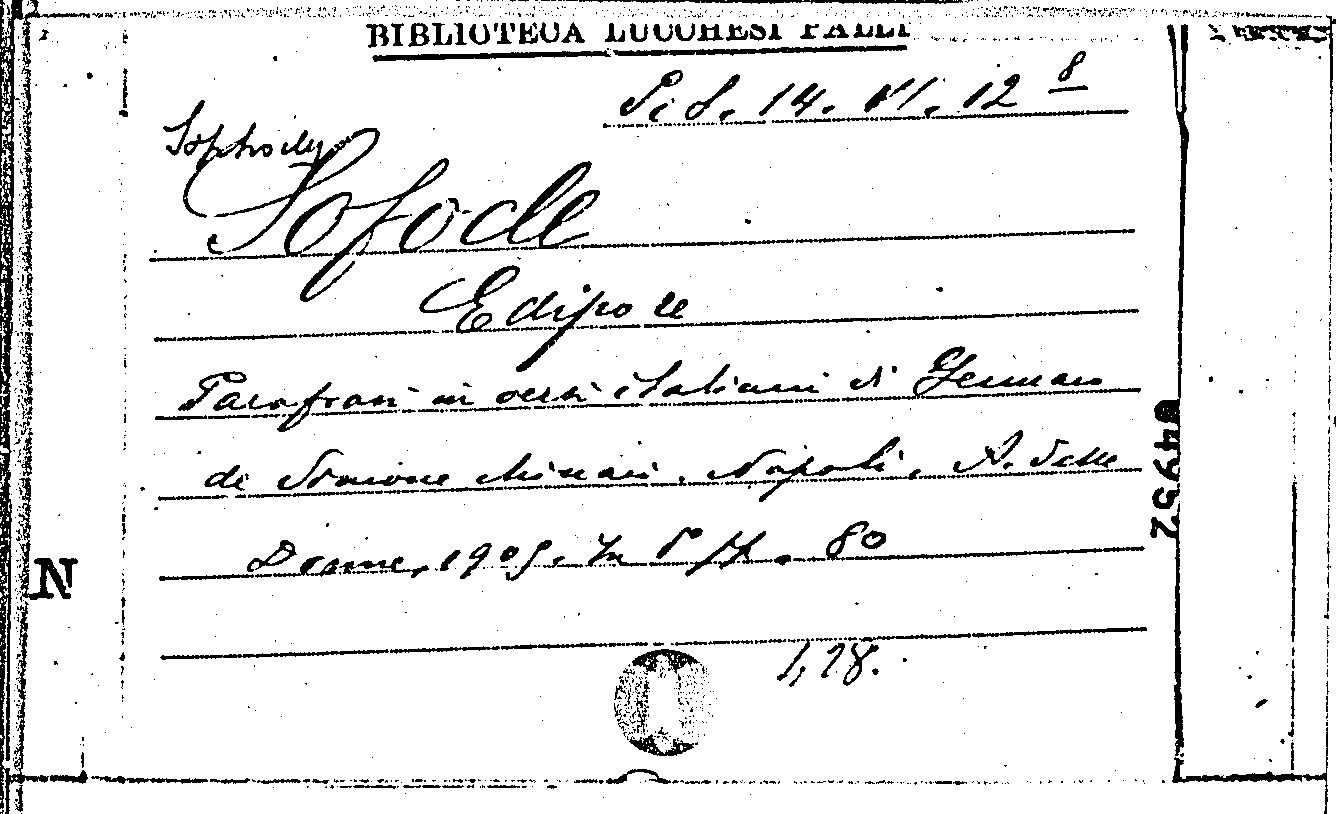 BIBLIOTECA LUCCHESI PALLI
14. VI. 12 8
Sophocles
Sofocle
Edipo re
Parafrasi in versi italiani di Gennaro
de Simone Minaci. Napoli, A. Tille
1905. In 8 pp. 80
N
04952
1,28.